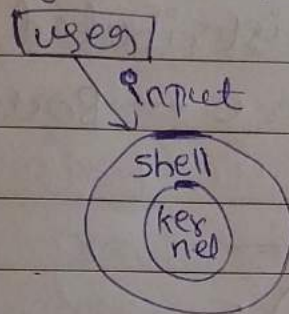 user
input
shell
ker
nel